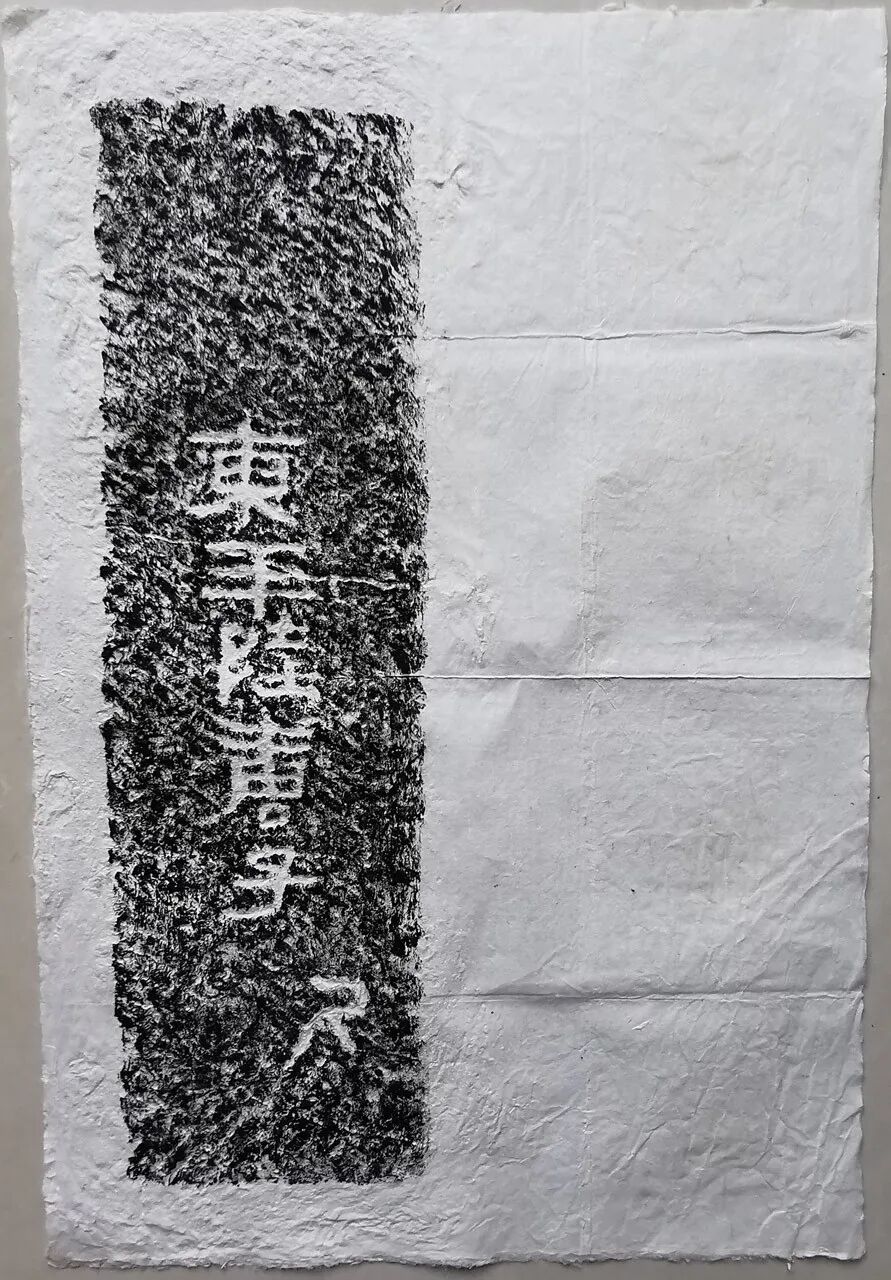 東平陸唐子